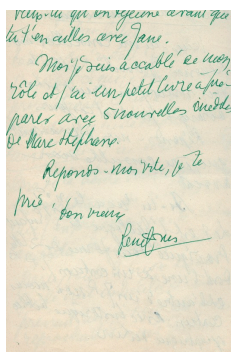 Veux-tu qu'on déjeune avant que
tu t'en ailles avec Jane.
Moi je suis accablé de mon
rôle et j'ai un petit livre à pré-
parer avec 5 nouvelles inédites
de Marc Stéphane.
Réponds-moi vite, je te
prie, ton vieux